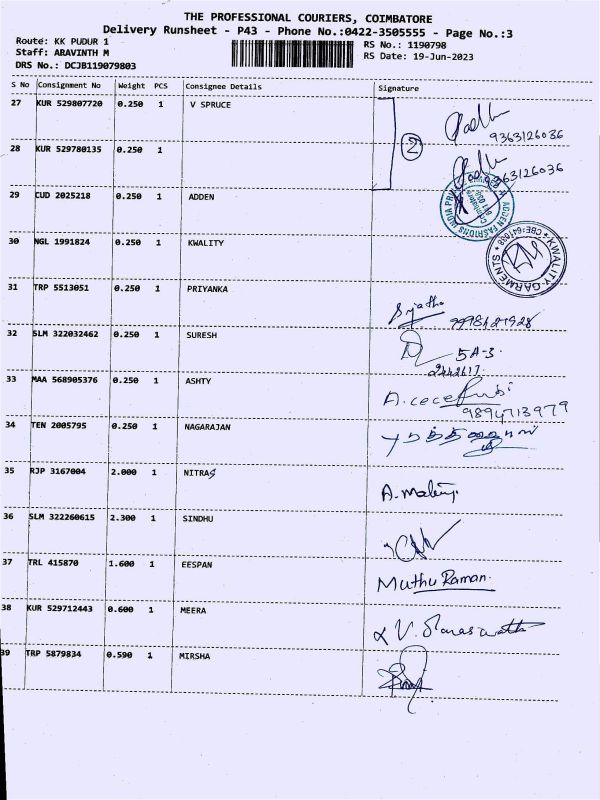 THE PROFESSIONAL COURIERS, COIMBATORE
Delivery Runsheet - P43 - Phone No.:0422-3505555 - Page No.:3
Route: KK PUDUR 1
RS No.: 1190798
Staff: ARAVINTH M
RS Date: 19-Jun-2023
DRS No.: DCJB119079803
S No Consignment No Weight PCS Consignee Details Signature
27 KUR 529807720 0.250 1 V SPRUCE
9363126036
2
28 KUR 529780135 0.250 1
63126036
29 CUD 2025218 0.250 1 ADDEN
ADDEN FASHIONS INDIA
30 NGL 1991824 0.250 1 KWALITY
KWALITY GARMENTS
31 TRP 5513051 0.250 1 PRIYANKA
32 SLM 322032462 0.250 1 SURESH
5A-3
33 MAA 568905376 0.250 1 ASHTY
9894713979
34 TEN 2005795 0.250 1 NAGARAJAN
35 RJP 3167004 2.000 1 NITRAS
36 SLM 322260615 2.300 1 SINDHU
37 TRL 415870 1.600 1 EESPAN
Muthu Raman.
38 KUR 529712443 0.600 1 MEERA
39 TRP 5879834 0.590 1 MIRSHA